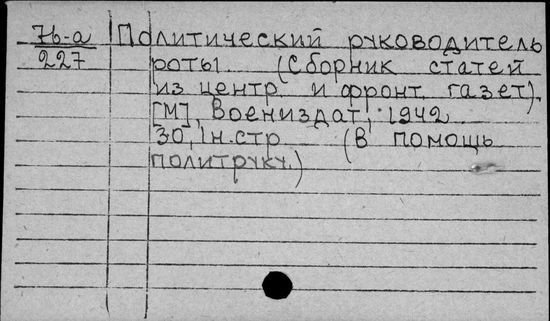 7б-а Политический руководитель
227 роты. (Сборник статей
из центр. и фронт. газет).
[М], Воениздат, 1942.
30, 1н.стр (В помощь
политруку.)